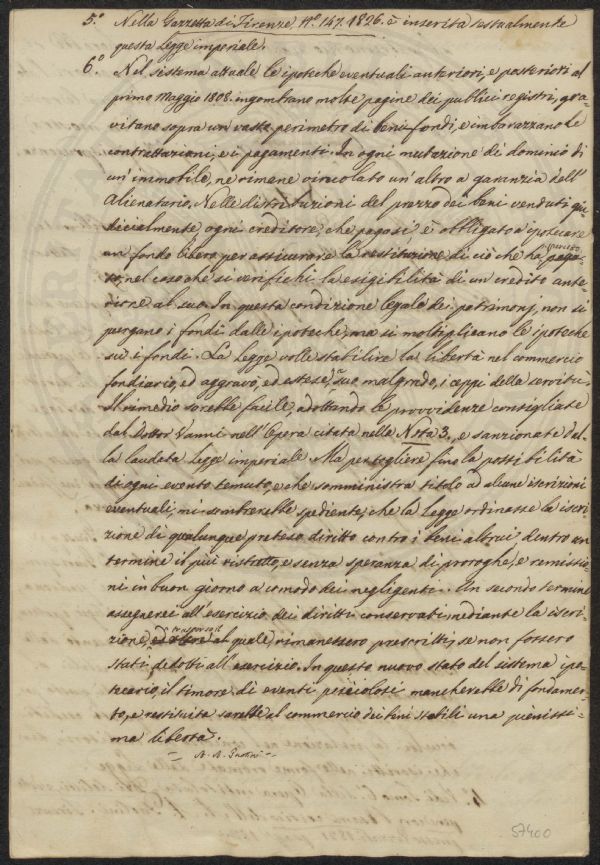 5.° Nella Gazzetta di Firenze N.° 147. 1826. è inserita testualmente
questa Legge imperiale.
6.° Nel sistema attuale le ipoteche eventuali anteriori, e posteriori al
primo Maggio 1808. ingombrano molte pagine dei publici registri, gra-
vitano sopra un vasto perimetro di beni-fondi, e imbarazzano le
contrattazioni, e i pagamenti. In ogni mutazione di dominio di
un'immobile, ne rimene vincolato un'altro a garanzia dell'
Alienatario. Nelle distribuzioni del prezzo dei beni venduti giu-
dicialmente, ogni creditore, che pagasi è obbligato a ipotecare
un fondo libero per assicurare la restituzione di ciò che ha
to, nel caso che si verifichi la esigibilità di un credito ante-
riore al suo. In questa condizione legale dei patrimonj, non si
purgano i fondi dalle ipoteche, ma si moltiplicano le ipoteche
sui fondi. La Legge volle stabilire la libertà nel commercio
fondiario, ed aggravò, ed estese, suo malgrado, i ceppi delle servitù.
Il rimedio sarebbe facile, adottando le provvidenze consigliate
dal Dottor Vanni nell'Opera citata nella Nota 3., e sanzionate dal-
la laudata Legge imperiale. Ma per togliere fino la possibilità
di ogni evento temuto, e che somministra titolo ad alcune iscrizioni
eventuali, mi sembrerebbe spediente, che la Legge ordinasse la iscri-
zione di qualunque preteso diritto contro i beni altrui dentro un
termine il più ristretto, e senza speranza di proroghe, e remissio-
ni in buon giorno a comodo dei negligenti. Un secondo termine
assegnerei all'esercizio dei diritti conservati mediante la iscri-
zione, quale, rimanessero prescritti, se non fossero
stati dedotti all'esercizio. In questo nuovo stato del sistema ipo-
tecario, il timore di eventi pericolosi mancherebbe di fondamen-
to, e restituita sarebbe al commercio dei beni stabili una pienissi-
ma libertà.
57400